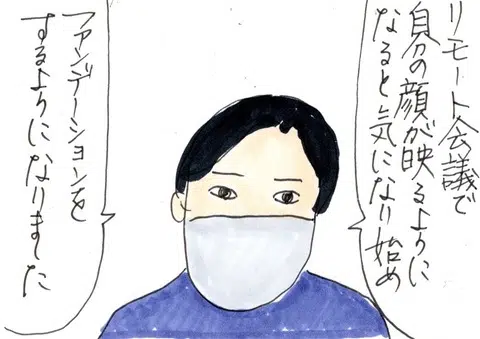 リモート会議で
自分の顔が映るように
なると気になり始め
ファンデーションを
するようになりました